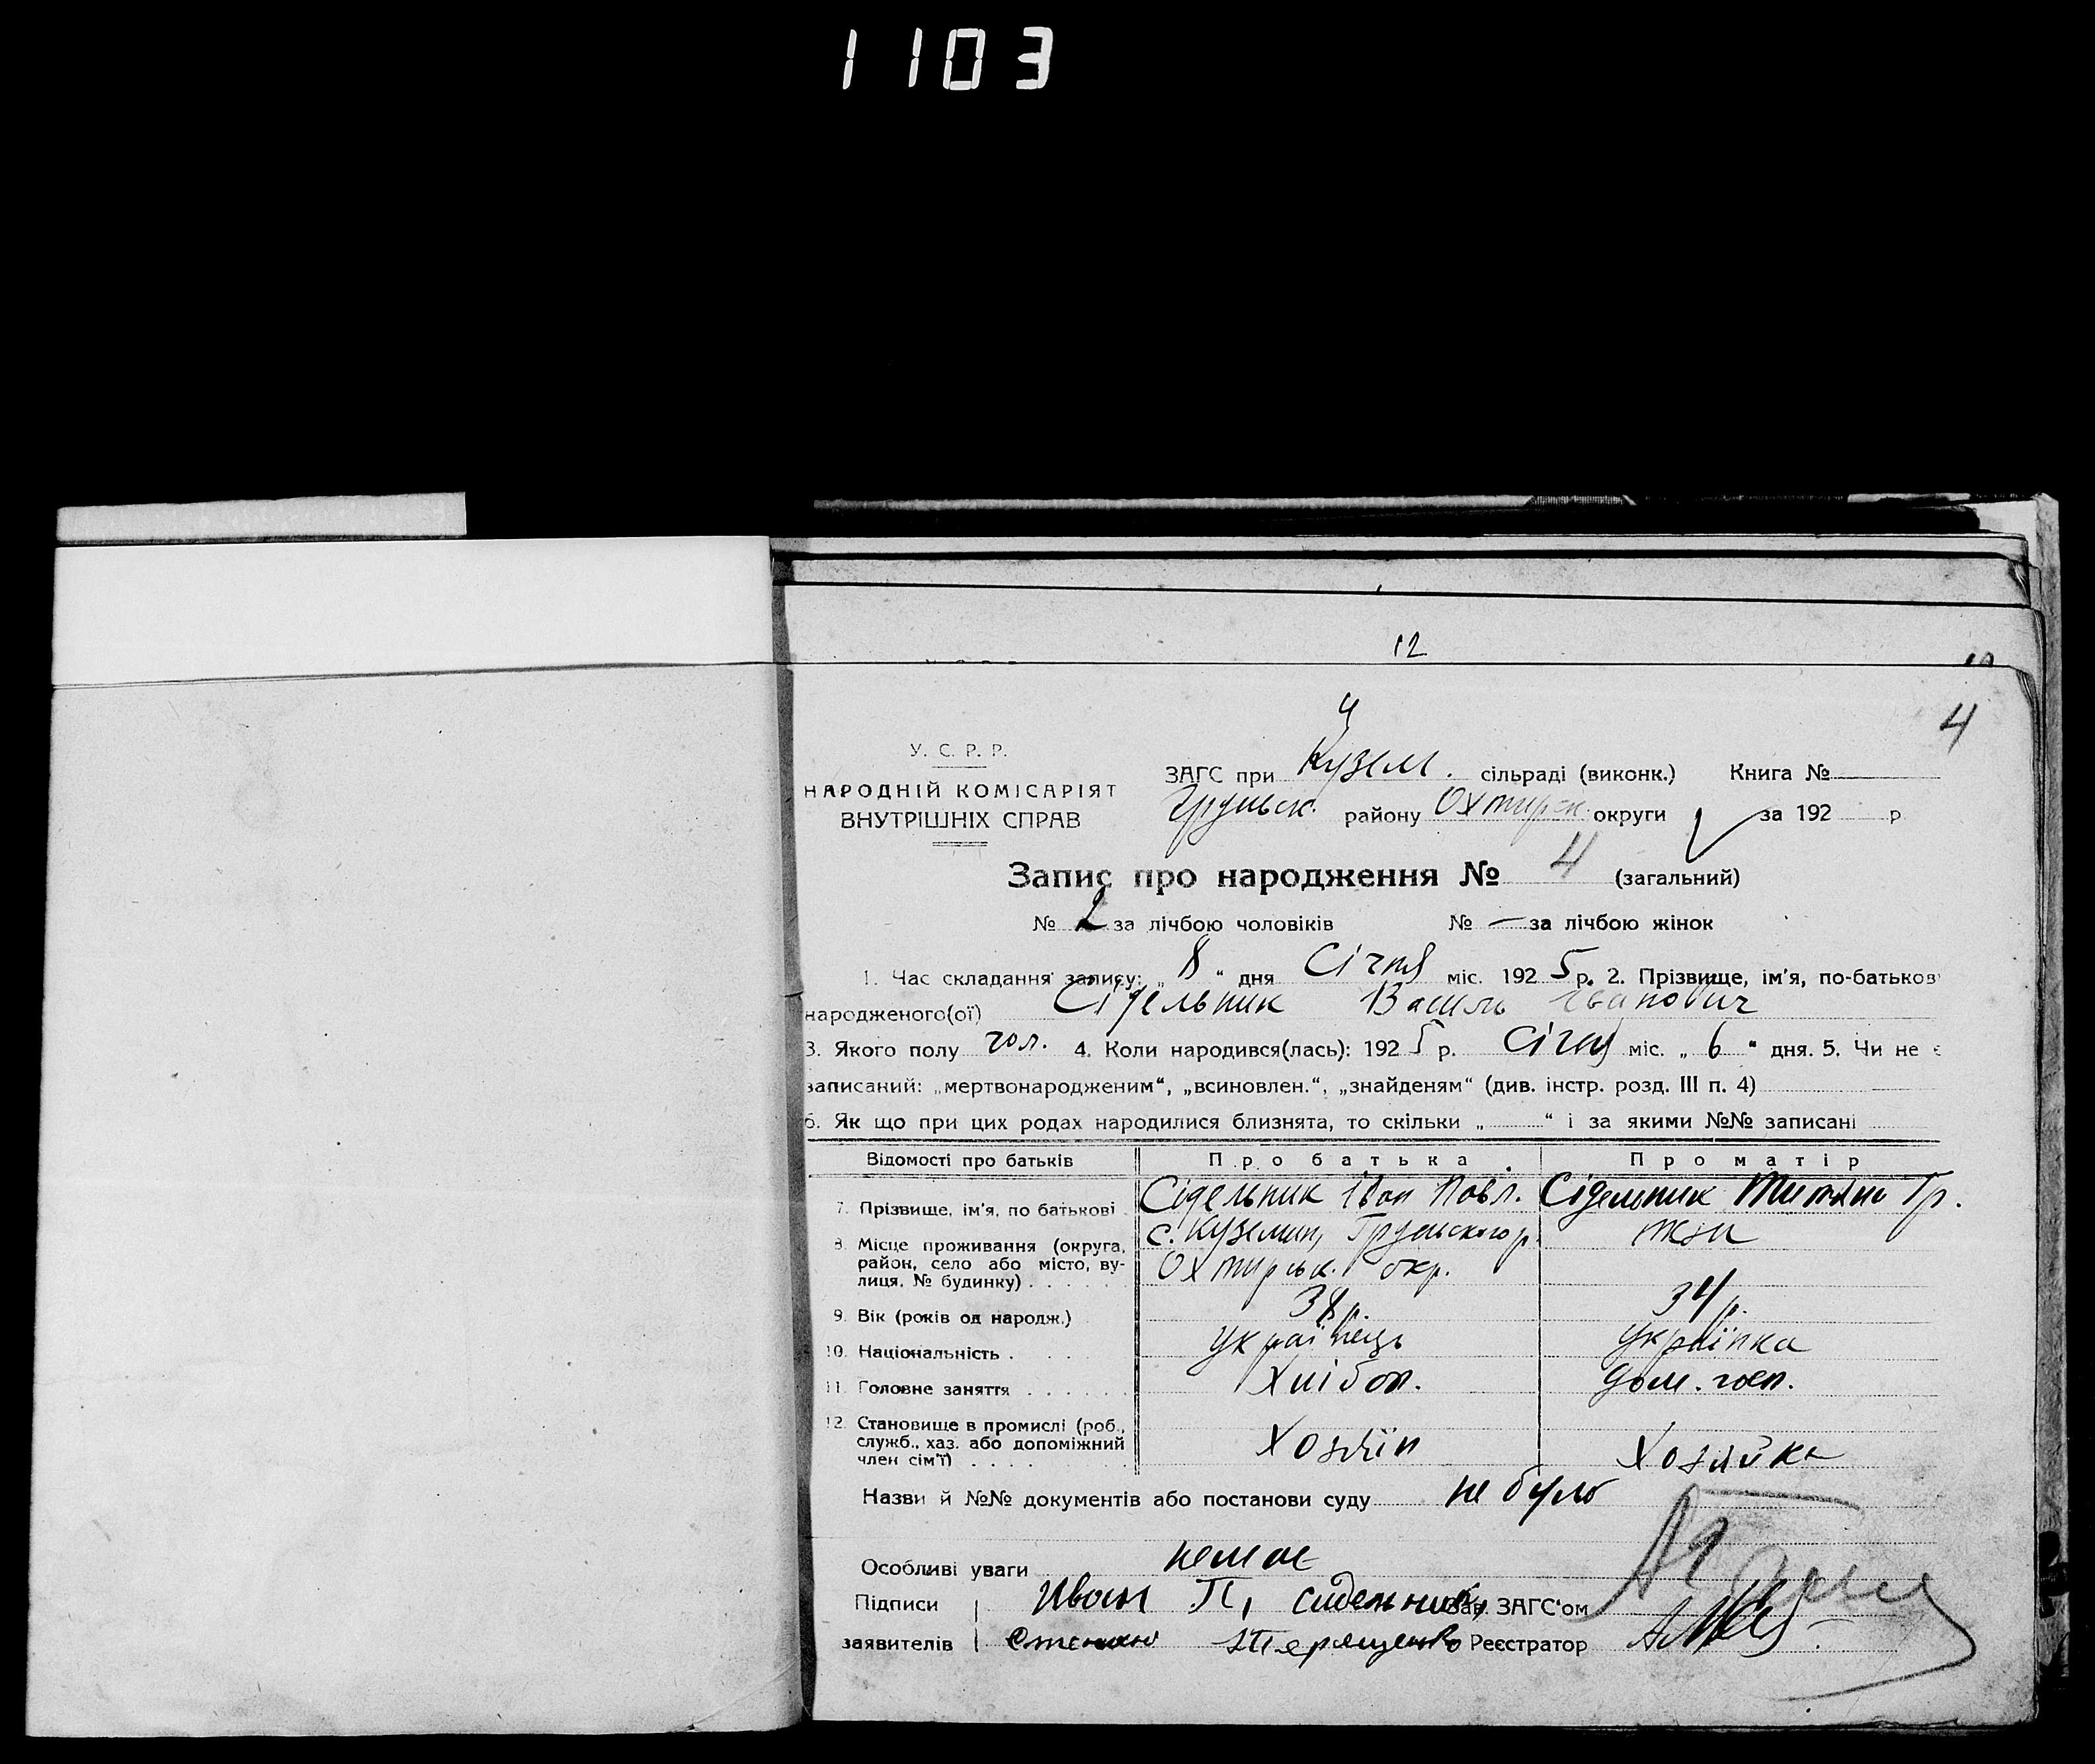 1103
12
4
4
У. С. Р. Р.
НАРОДНІЙ КОМІСАРІЯТ
ВНУТРІШНІХ СПРАВ
ЗАГС при Кузем. сільраді (виконк.) Книга №
Грунськ. району Охтирськ. округи за 192 р
Запис про народження № 4 (загальний)
№ 2 за лічбою чоловіків № — за лічбою жінок
1. Час складання запису: „ 8 “ дня Січня міс. 192 5 р. 2. Прізвище, ім'я, по-батьков
народженого(ої) Сідельник Василь Іванович
3. Якого полу чол. 4. Коли народився(лась): 192 5 р. Січня міс. „ 6 “ дня. 5. Чи не є
записаний: „мертвонародженим“, „всиновлен.“, „знайденям“ (див. інстр. розд. III п. 4)
6. Як що при цих родах народилися близнята, то скільки „ “ і за якими №№ записані
Відомості про батьків Про батька Про матір
7. Прізвище, ім'я, по батькові Сідельник Іван Павл. Сідельник Гр.
8. Місце проживання (округа, район, село або місто, вулиця, № будинку) с. Куземин, Грунського р. Охтирськ. окр.
9. Вік (років од народж.) 38 р. 34 р.
10. Національність українець українка
11. Головне заняття Хлібоп. дом. госп.
12. Становище в промислі (роб., служб., хаз. або допоміжний член сім'ї) Хозяїн Хозяйка
Назви й №№ документів або постанови суду не було
Особливі уваги немає
Підписи Иван П, сидельник, Зав. ЗАГС'ом
заявителів Терещенко Реєстратор